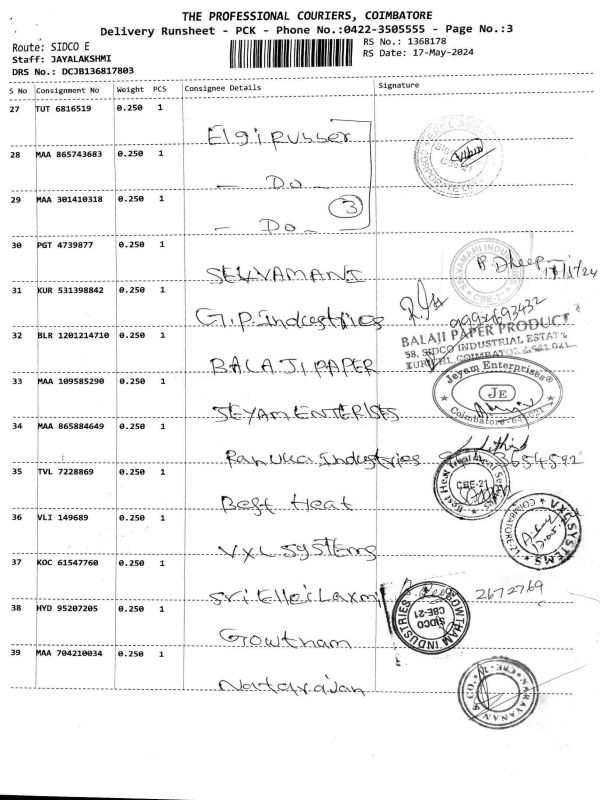 THE PROFESSIONAL COURIERS, COIMBATORE
Delivery Runsheet - PCK - Phone No.:0422-3505555 - Page No.:3
Route: SIDCO E
RS No.: 1368178
Staff: JAYALAKSHMI
RS Date: 17-May-2024
DRS No.: DCJB136817803
S No Consignment No Weight PCS Consignee Details Signature
27 TUT 6816519 0.250 1
Elgi Rubber
28 MAA 865743683 0.250 1
- Do -
29 MAA 301410318 0.250 1
3
- Do -
30 PGT 4739877 0.250 1
SELVAMANI
31 KUR 531398842 0.250 1
G.P. Industries
32 BLR 1201214710 0.250 1
BALAJI PAPER PRODUCT
58, SIDCO INDUSTRIAL ESTATE
BALAJI PAPER
33 MAA 109585290 0.250 1
Jeyam Enterprises®
JE
Coimbatore-641021
JEYAM ENTERISES
34 MAA 865884649 0.250 1
Industries
35 TVL 7228869 0.250 1
CBE-21
Best Heat
36 VLI 149689 0.250 1
VXL SYSTEMS
VXL SYSTEMS
37 KOC 61547760 0.250 1
2672769
Sri Ellei Laxmi
38 HYD 95207205 0.250 1
GOWTHAM INDUSTRIES
SIDCO
CBE-21
Gowtham
39 MAA 704210034 0.250 1
Natarajan
NARAYANAN & CO.